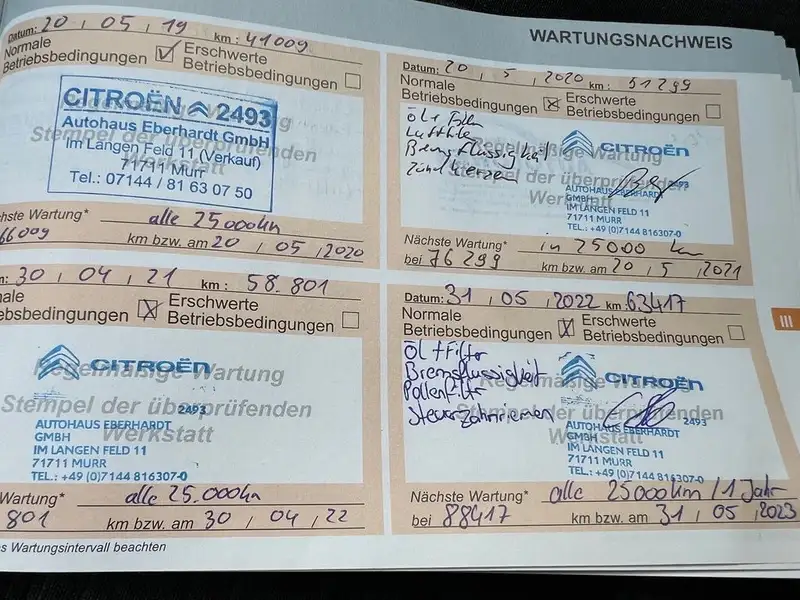 WARTUNGSNACHWEIS
Datum: 20 / 05 / 19 km: 41009
Normale Betriebsbedingungen ☑ Erschwerte Betriebsbedingungen ☐
Regelmäßige Wartung
Stempel der überprüfenden Werkstatt
CITROËN 2493
Autohaus Eberhardt GmbH
Im Langen Feld 11 (Verkauf)
71711 Murr
Tel.: 07144 / 81 63 07 50
chste Wartung* alle 25000km
66009 km bzw. am 20 / 05 / 2020
Datum: 20 / 5 / 2020 km: 51299
Normale Betriebsbedingungen ☒ Erschwerte Betriebsbedingungen ☐
Regelmäßige Wartung
Stempel der überprüfenden Werkstatt
Bremsflüssigkeit
Zündkerzen
CITROËN
2493
AUTOHAUS EBERHARDT
GMBH
IM LANGEN FELD 11
71711 MURR
TEL.: +49 (0)7144 816307-0
Nächste Wartung* in 25000 km
bei 76299 km bzw. am 20 / 5 / 2021
m: 30 / 04 / 21 km: 58.801
male
ebsbedingungen ☒ Erschwerte Betriebsbedingungen ☐
Regelmäßige Wartung
Stempel der überprüfenden Werkstatt
CITROËN
2493
AUTOHAUS EBERHARDT
GMBH
IM LANGEN FELD 11
71711 MURR
TEL.: +49 (0)7144 816307-0
Wartung* alle 25.000km
801 km bzw. am 30 / 04 / 22
Datum: 31 / 05 / 2022 km: 63417
Normale Betriebsbedingungen ☒ Erschwerte Betriebsbedingungen ☐
Regelmäßige Wartung
Stempel der überprüfenden Werkstatt
Öl + Filter
Bremsflüssigkeit
Pollenfilter
Steuerzahnriemen
CITROËN
2493
AUTOHAUS EBERHARDT
GMBH
IM LANGEN FELD 11
71711 MURR
TEL.: +49 (0)7144 816307-0
Nächste Wartung* alle 25000km / 1 Jahr
bei 88417 km bzw. am 31 / 05 / 2023
s Wartungsintervall beachten
III